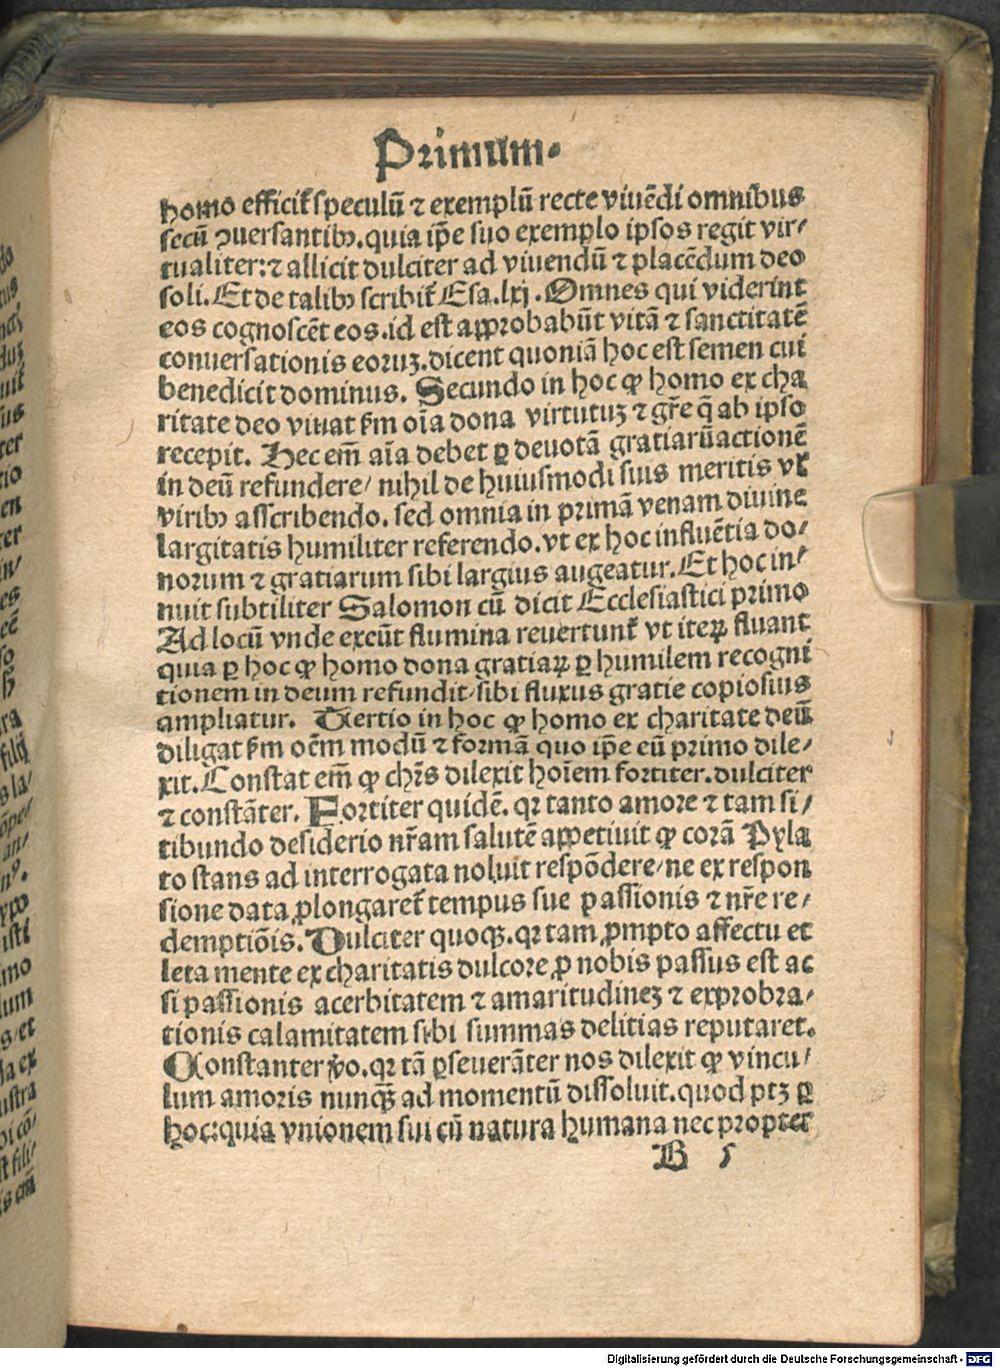 Primum.
homo efficit᷑ speculū ⁊ exemplū recte viuēdi omnibus
secū ꝯuersantibꝰ. quia ip̄e suo exemplo ipsos regit vir⸗
tualiter: ⁊ allicit dulciter ad viuendū ⁊ placēdum deo
soli. Et de talibꝰ scribit᷑ Esa. lxj. Omnes qui viderint
eos cognoscēt eos. id est approbabūt vitā ⁊ sanctitatē
conuersationis eoruꝫ. dicent quoniā hoc est semen cui
benedicit dominus. Secundo in hoc ꝙ homo ex cha
ritate deo viuat ẜm oīa dona virtutuꝫ ⁊ gr̄e q̄ ab ipso
recepit. Hec em̄ aīa debet ꝑ deuotā gratiarū actionē
in deū refundere / nihil de huiusmodi suis meritis vł
viribꝰ asscribendo. sed omnia in primā venam diuine
largitatis humiliter referendo. vt ex hoc influētia do⸗
norum ⁊ gratiarum sibi largius augeatur. Et hoc in⸗
nuit subtiliter Salomon cū dicit Ecclesiastici primo
Ad locū vnde exeūt flumina reuertunt᷑ vt iteꝝ fluant
quia ꝑ hoc ꝙ homo dona gratiaꝝ ꝑ humilem recogni
tionem in deum refundit / sibi fluxus gratie copiosius
ampliatur. Tertio in hoc ꝙ homo ex charitate deū
diligat ẜm oēm modū ⁊ formā quo ip̄e eū primo dile⸗
xit. Constat em̄ ꝙ chr̄s dilexit hoīem fortiter. dulciter
⁊ constāter. Fortiter quidē. qꝛ tanto amore ⁊ tam si⸗
tibundo desiderio nr̄am salutē appetiuit ꝙ corā Pyla
to stans ad interrogata noluit respōdere / ne ex respon
sione data ꝓlongaret᷑ tempus sue passionis ⁊ nr̄e re⸗
demptiōis. Dulciter quoqꝫ. qꝛ tam ꝓmpto affectu et
leta mente ex charitatis dulcore ꝓ nobis passus est ac
si passionis acerbitatem ⁊ amaritudineꝫ ⁊ exprobra⸗
tionis calamitatem sibi summas delitias reputaret.
Constanter v̓o. qꝛ tā ꝑseuerāter nos dilexit ꝙ vincu⸗
lum amoris nunqꝫ̄ ad momentū dissoluit. quod ptꝫ ꝑ
hoc: quia vnionem sui cū natura humana nec propter
B 5
Digitalisierung gefördert durch die Deutsche Forschungsgemeinschaft - DFG